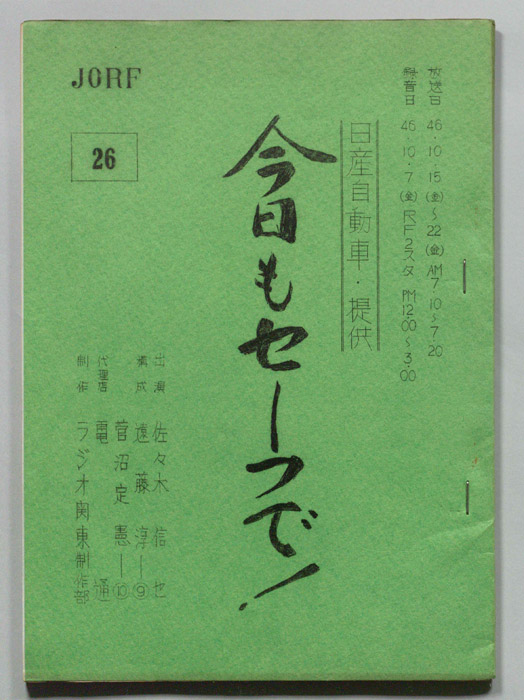 放送日 46・10・15(金)〜22(金) AM7・10〜7・20
録音日 46・10・7(金) RFスタ PM12:00〜3:00
日産自動車・提供
今日もセーフで!
JORF
26
出演 佐々木信也
構成 遠藤淳―⑨
菅沼定憲―⑩
代理店 電通
制作 ラジオ関東制作部